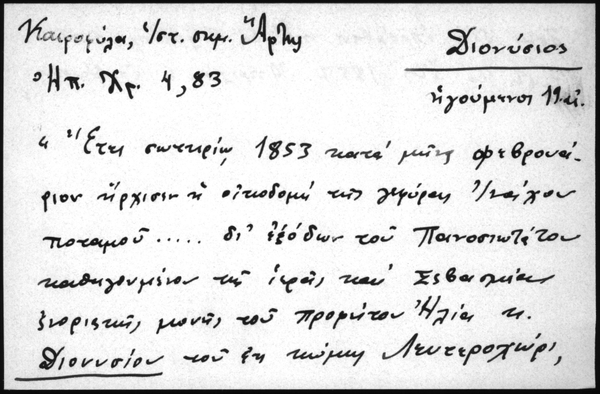 Καιροφύλα, Ἱστ. σημ. Ἄρτης
Διονύσιος
Ἠπ. Χρ. 4, 83
ἡγούμενοι 19 αἰ.
"Ἔτει σωτηρίῳ 1853 κατά μῆνα φεβρουά-
ριον ἤρχισεν ἡ οἰκοδομή τῆς γεφύρας Ἰνάχου
ποταμοῦ ..... δι' ἐξόδων τοῦ Πανοσιωτάτου
καθηγουμένου τῆς ἱερᾶς καί Σεβασμίας
μονῆς τοῦ προφήτου Ἠλία κ.
Διονυσίου τοῦ ἐκ κώμης Λευτεροχώρι,